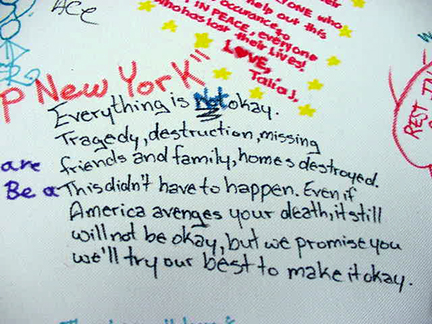 ACE
ONE who
help out this
occurance to
IN PEACE, everyone
who has lost their lives!
LOVE,
Talia J.
P NEW YORK"
Everything is Not okay.
Tragedy, destruction, missing
friends and family, homes destroyed.
This didn't have to happen. Even if
America avenges your death, it still
will not be okay, but we promise you
we'll try our best to make it okay.
are
Be a
REST